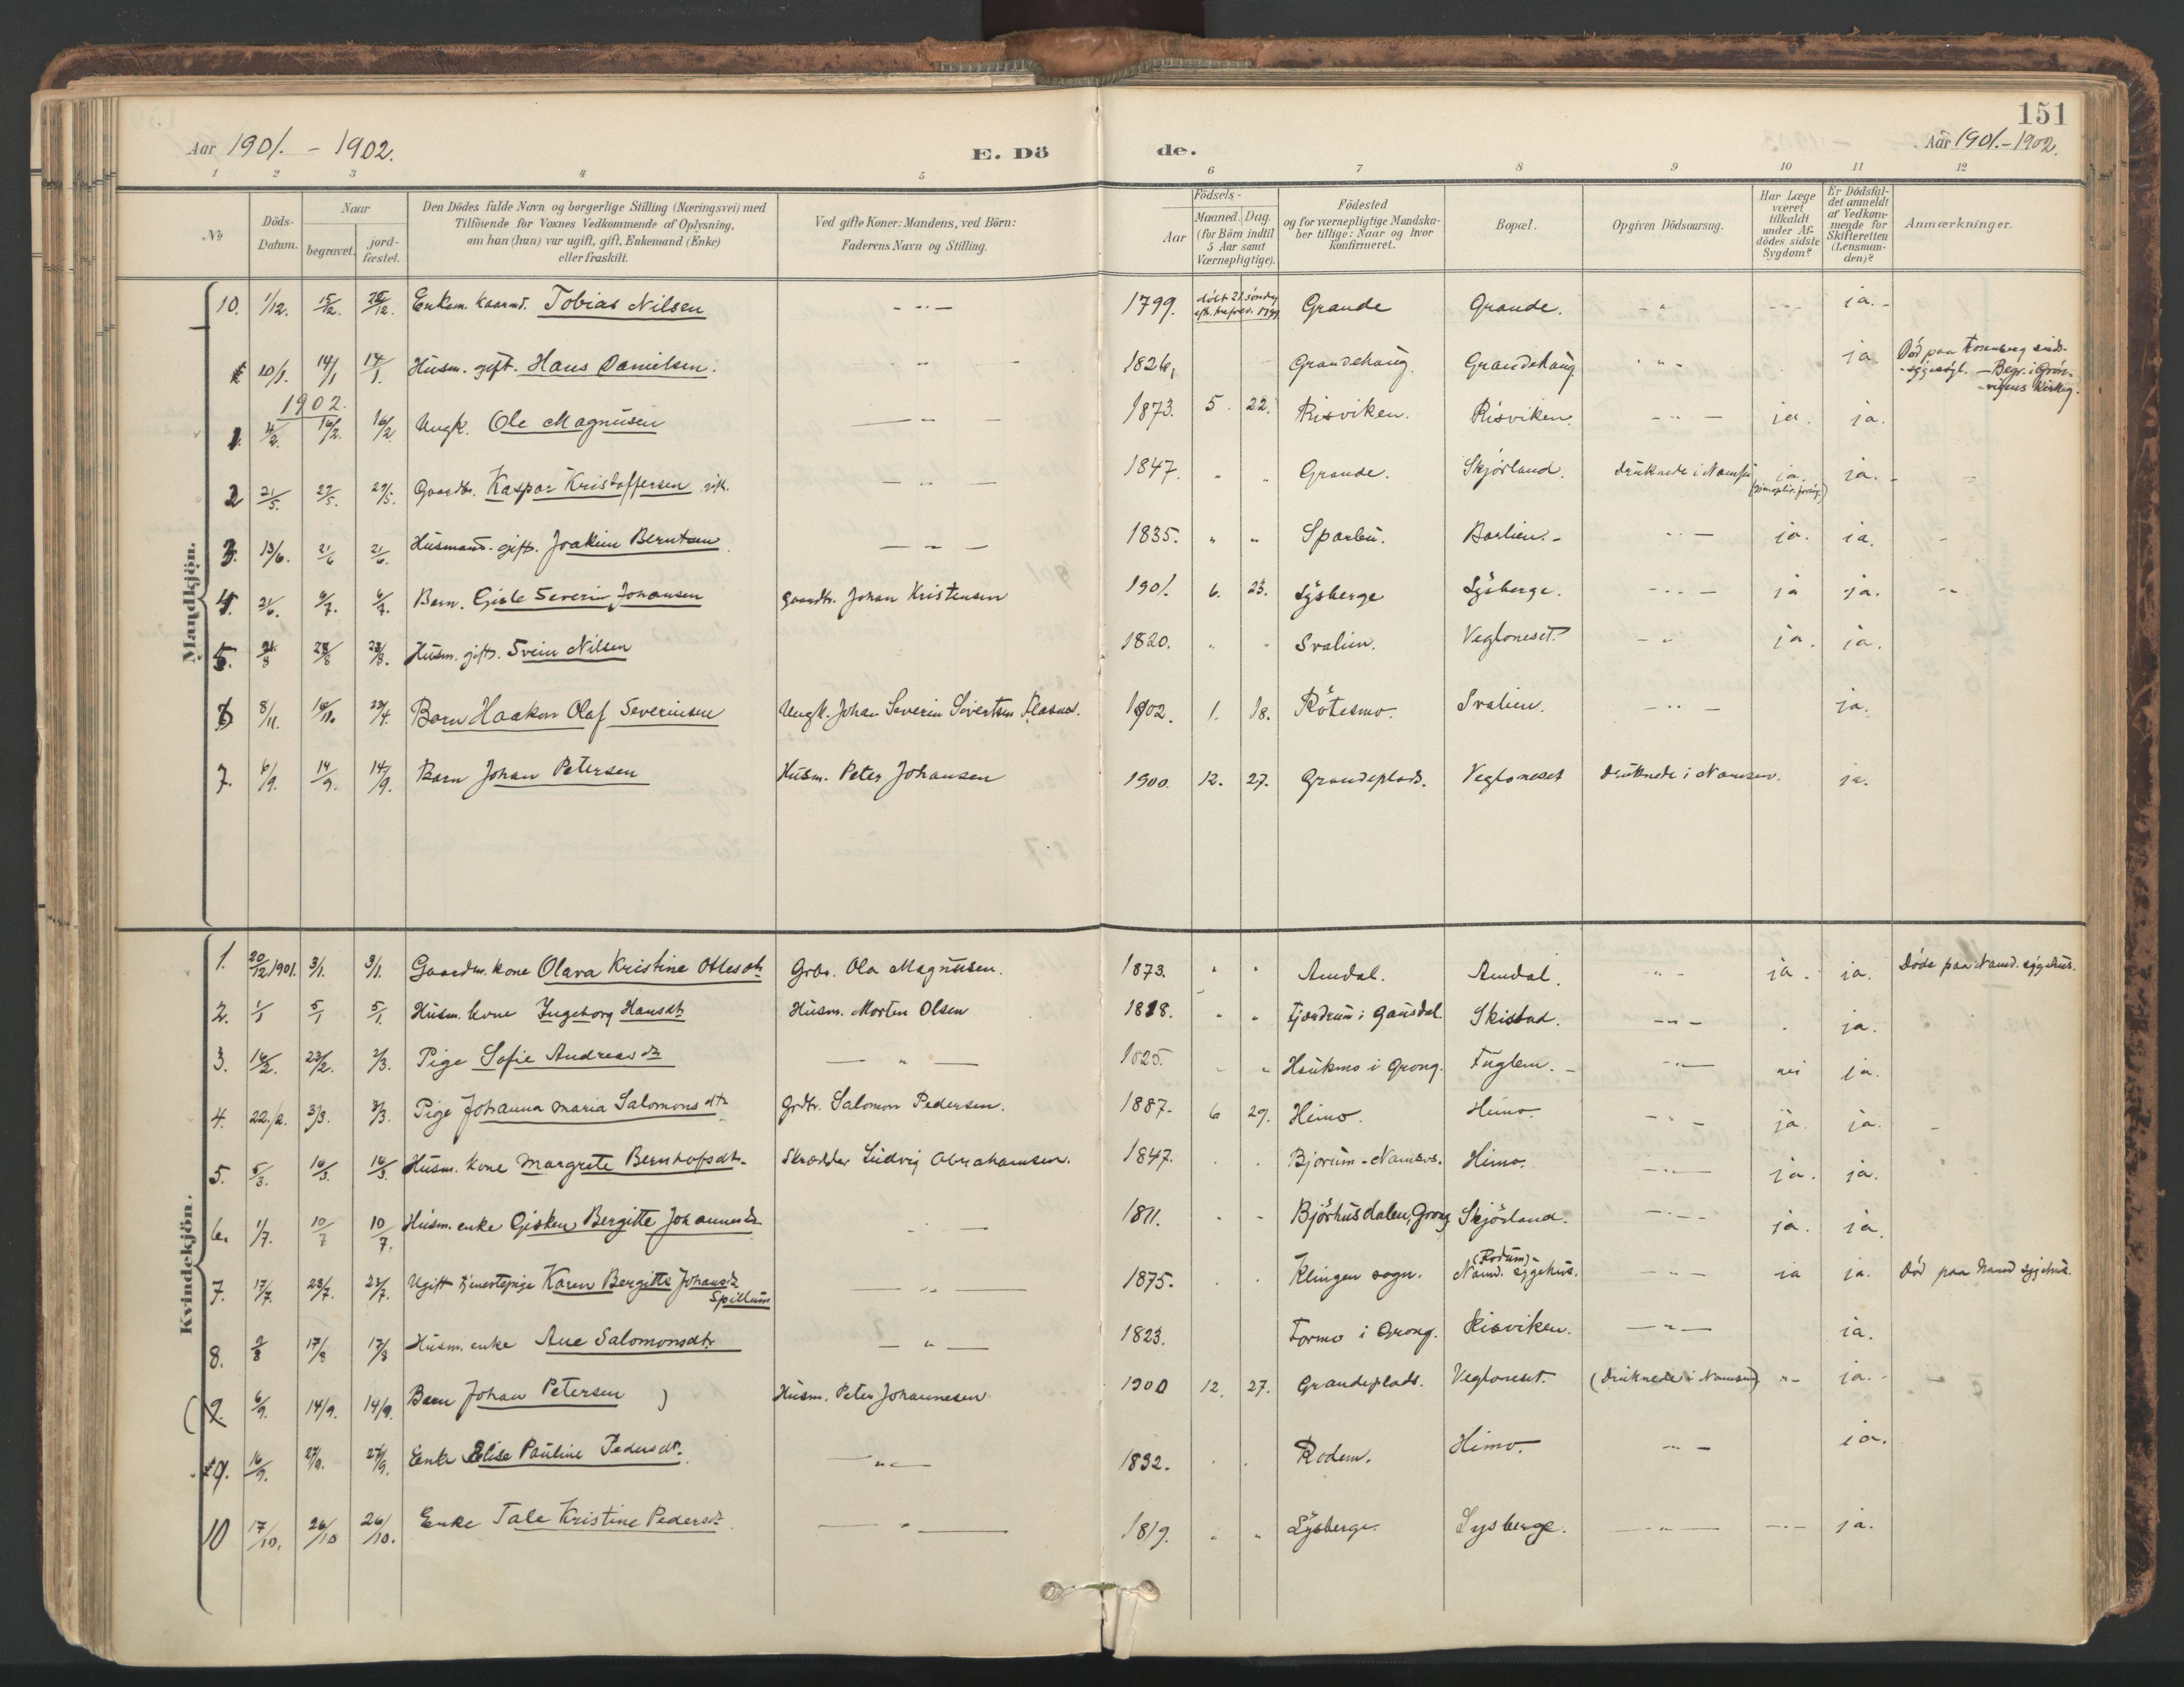 151
Aar 1901. - 1902.
E. Dö
de.
Aar 1901. - 1902.
1 2 3 4 5 6 7 8 9 10 11 12
No
Döds-
Datum.
Naar
begravet.
jord-
fæstet.
Den Dödes fulde Navn og borgerlige Stilling (Næringsvei) med
Tilföiende för Voxnes Vedkommende af Oplysning,
om han (hun) var ugift, gift, Enkemand (Enke)
eller fraskilt.
Ved gifte Koner: Mandens, ved Börn:
Faderens Navn og Stilling.
Födsels-
Aar
Maaned. Dag.
(for Börn indtil
5 Aar samt
Værnepligtige).
Födested
og for værnepligtige Mandska-
ber tillige: Naar og hvor
konfirmeret.
Bopæl.
Opgiven Dödsaarsag.
Har Læge
været
tilkaldt
under Af-
dödes sidste
Sygdom?
Er Dödsfal-
det anmeldt
af Vedkom-
mende for
Skifteretten
(Lensman-
den)?
Anmærkninger.
Mandkjön.
10. 1/12. 15/12. 15/12. Enkem. kaarmd. Tobias Nilsen - " - 1799. döbt 21 söndag Grande Grande. - " - - " - ja. -
10/1. 14/1 14/1. Husm. gift. Hans Danielsen. - " - 1826, Grandehaug. Grandehaug - " - ja. Död paa Rosenberg sinds-
sygeasyl. - Begr. i Grön-
1902.
1. 4/2. 16/2. 16/2. Ungk. Ole Magnusen - " - 1873. 5. 22. Risviken. Risviken. - " - ja. ja.
2 21/5. 29/5. 29/5. Gaardbr. Kaspar Kristoffersen gift. - " - 1847. " " Grande. Skjörland. Druknede i Namsen ja. ja. -
3. 13/6. 21/6 21/6. Husmand. gift. Joakim Berntsen - " - 1835. " " Sparbu. Barlien. - - " - ja. ja. -
4. 21/6. 6/7. 6/7. Barn. Gisle Severin Johansen Gaardbr. Johan Kristensen 1901. 6. 23. Lysberge Lysberge. - " - ja ja. - "
5. 21/8 28/8 28/8. Husm. gift. Svein Nilsen 1820. " " Svalien. Vegloneset. - " - ja. ja.
6 8/11. 16/11. Barn Haakon Olaf Severinsen Ungk. Johan Severin Sivertsen 1902. 1. 18. Rötesmo. Svalien. - " - ja.
7. 6/9. 14/9. 14/9. Barn Johan Petersen Husm. Peter Johansen 1900. 12. 27. Grandeplads. Vegloneset Druknede i Namsen. ja.
Kvindekjön.
1. 20/12 1901. 3/1. 3/1. Gaardm. kone Olava Kristine Ottesdtr Grbr. Ola Magnusen. 1873. " " Amdal. Amdal. " - ja. ja. Döde paa Namd. sygehus.
2. 1/1 5/1 5/1. Husm. kone Ingeborg Hansdtr Husm. Morten Olsen 1828. " " Fjærdrum i Gausdal. Skistad. - " - . ja.
3. 16/2. 23/2. 2/3. Pige Sofie Andreasdtr - " - 1825. " " Haukmo i Grong. Fuglem. - - " - nei ja.
4. 22./2. 3/3. 3/3. Pige Johanna Maria Salomonsdtr Grdbr. Salomon Pedersen. 1887. 6 29. Himo. Himo. - " - ja. ja. -
5. 5/3. 16/3. 16/3. Husm. kone Margrete Bernhofsdtr. Skrædder Ludvig Abrahamsen. 1847. . . Bjorum - Namsos. Himo. - " - ja. ja.
6. 1/7. 10/7 10/7. Husm. enke Gisken Bergitte Johannesdtr - " - 1811. " " Bjørhusdalen, Grong Skjörland. - " - ja. ja.
7. 17/7. 23/7. 23/7. Ugift tjenestepige Karen Bergitte Johansdtr
Spillum - " - 1875. . . Klingen sogn. (Rodum) -
Namd. sygehus. - " - ja ja. Död paa Namd sygehus.
8. 2/8 17/8 17/8 Husm. enke Ane Salomonsdtr - " - 1823. Formo i Grong. Risviken. - " - ja.
(9. 6/9. 14/9. 14/9. Barn Johan Petersen ) Husm. Peter Johannesen 1900 12. 27. Grandeplads. Vegloneset (Druknede i Namsen) " - ja. - -
9. 16/9. 27/9. 27/9. Enke Elise Pauline Pedersdtr. - " - 1832. . . Rodem. Himo. - " - ja.
10 17/10. 26/10 26/10. Enke Tale Kristine Pedersdtr. - " - 1819. " " Lysberge. Lysberge. - " - - " - ja.